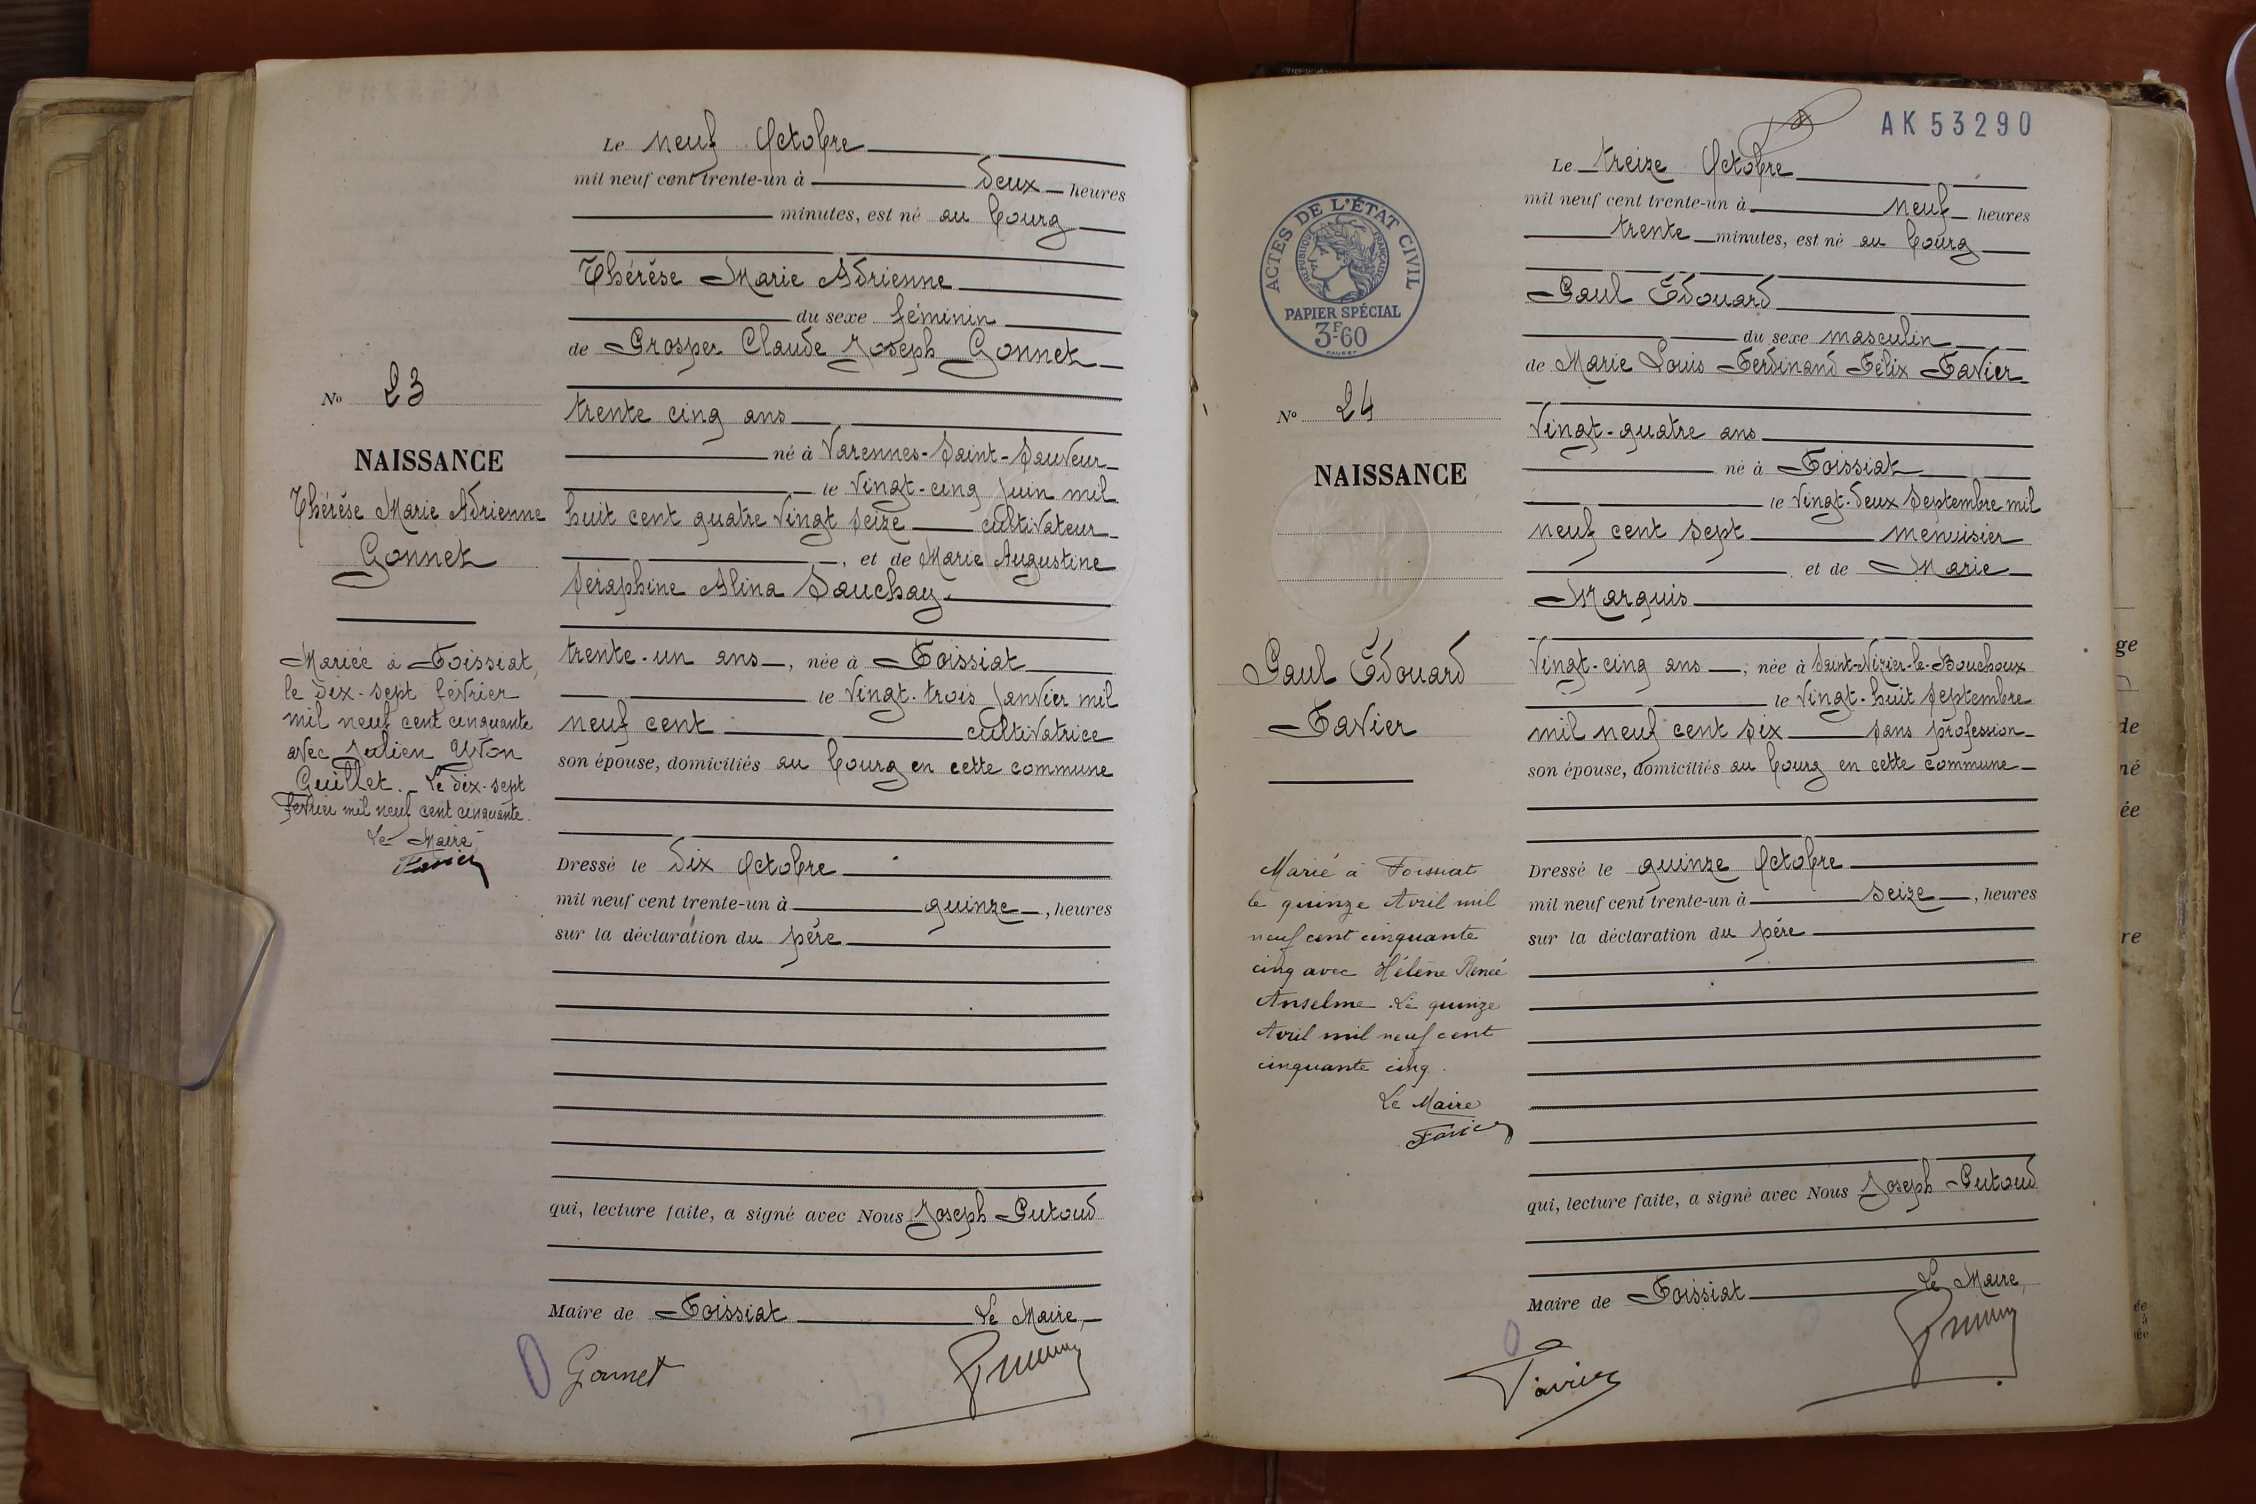 Le neuf Octobre
mil neuf cent trente-un à deux heures
minutes, est né au bourg
Thérèse Marie Adrienne
du sexe féminin
de Prosper Claude Joseph Gonnet
No 23
trente cinq ans
NAISSANCE
né à Varennes-Saint-Sauveur
le vingt-cinq Juin mil
Thérèse Marie Adrienne
Gonnet
huit cent quatre vingt seize cultivateur
, et de Marie Augustine
Séraphine Alina Sauchay
trente-un ans, née à Foissiat
le vingt-trois Janvier mil
neuf cent cultivatrice
son épouse, domiciliés au bourg en cette commune
Mariée à Foissiat,
le dix-sept février
mil neuf cent cinquante
avec Julien Yvon
Guillet. Le dix-sept
février mil neuf cent cinquante.
Le Maire
Favier
Dressé le dix Octobre
mil neuf cent trente-un à quinze, heures
sur la déclaration du père
qui, lecture faite, a signé avec Nous Joseph Putoud
Maire de Foissiat Le Maire,
Gonnet
AK 53290
Le treize Octobre
mil neuf cent trente-un à neuf heures
trente minutes, est né au bourg
ACTES DE L'ÉTAT CIVIL
RÉPUBLIQUE FRANÇAISE
PAPIER SPÉCIAL
3F60
Paul Édouard
du sexe masculin
de Marie Louis Ferdinand Félix Favier
No 24
vingt-quatre ans
NAISSANCE
né à Foissiat
le vingt-deux Septembre mil
neuf cent sept menuisier
et de Marie
Marquis
Paul Édouard
Favier
vingt-cinq ans, née à Saint-Nizier-le-Bouchoux
le vingt-huit Septembre
mil neuf cent six sans profession
son épouse, domiciliés au bourg en cette commune
Marié à Foissiat
le quinze Avril mil
neuf cent cinquante
cinq avec Hélène Renée
Anselme. Le quinze
Avril mil neuf cent
cinquante cinq.
Le Maire
Favier
Dressé le quinze Octobre
mil neuf cent trente-un à seize, heures
sur la déclaration du père
qui, lecture faite, a signé avec Nous Joseph Putoud
Maire de Foissiat Le Maire,
Favier
ge
de
né
ée
re